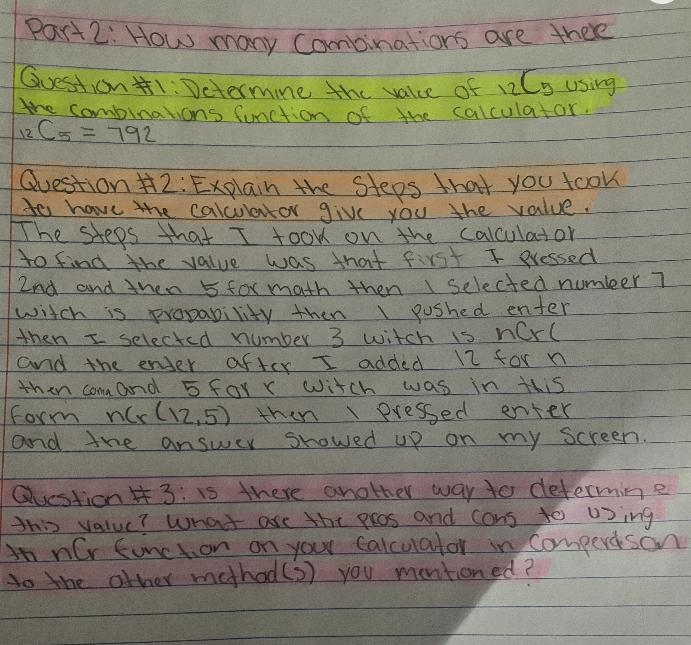 Part 2: How many Combinations are there
Question #1: Determine the value of 12C5 using
the combinations function of the calculator.
12C5 = 792
Question #2: Explain the Steps that you took
to have the calculator give you the value.
The steps that I took on the calculator
to find the value was that first I pressed
2nd and then 5 for math then I selected number 7
witch is propability then I pushed enter
then I selected number 3 witch is nCr(
and the enter after I added 12 for n
then coma and 5 for r witch was in this
form nCr(12,5) then I pressed enter
and the answer showed up on my screen.
Question #3: is there another way to determine
this value? What are the pros and cons to using
th nCr function on your calculator in comperdison
to the other method(s) you mentioned?